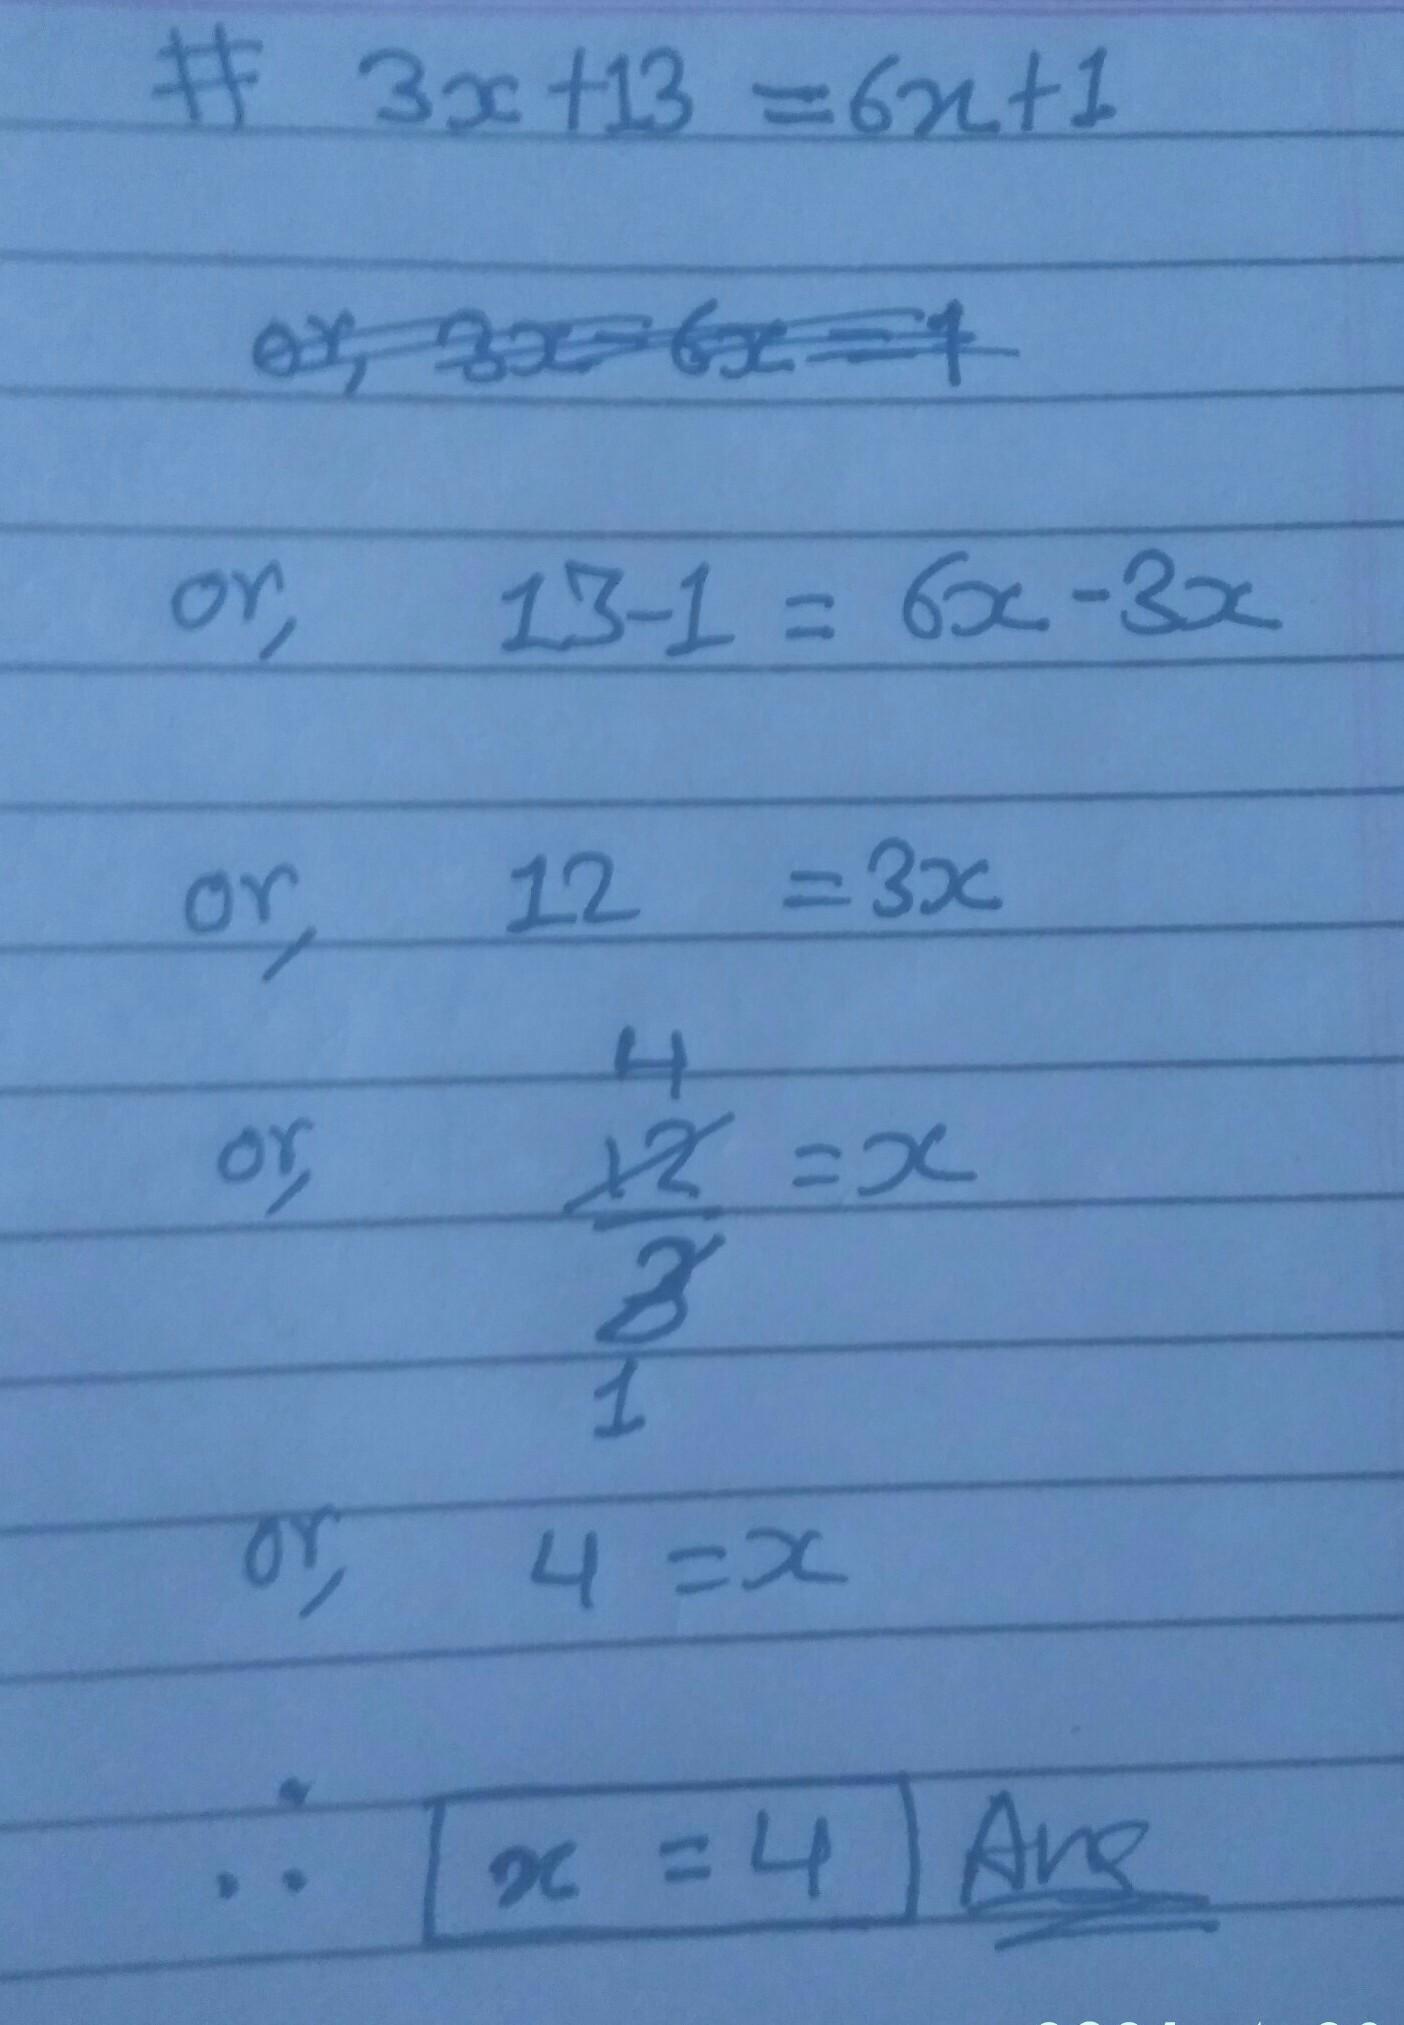 # 3x+13 = 6x+1
or, 3x-6x = 1
or, 13-1 = 6x-3x
or, 12 = 3x
4
or, 12 = x
3
1
or, 4 = x
∴ x = 4 Ans